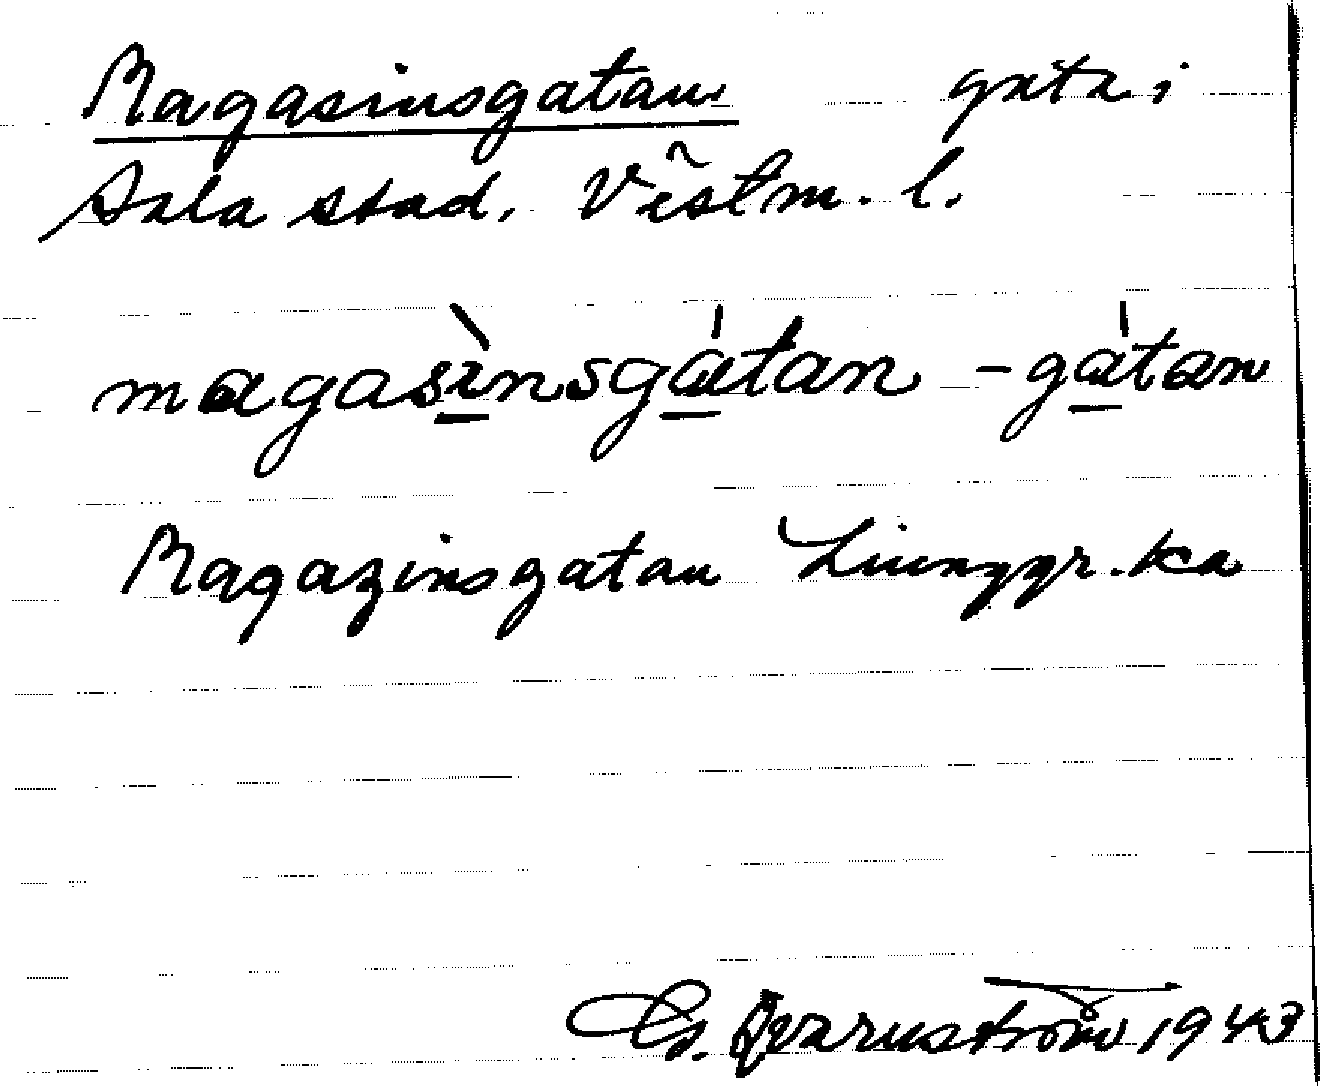 Magasinsgatan gata i
Sala stad, Västm. l.
magasìnsgátan -gátan
Magazinsgatan Ljunggr. ka
G. Qvarnström 1943